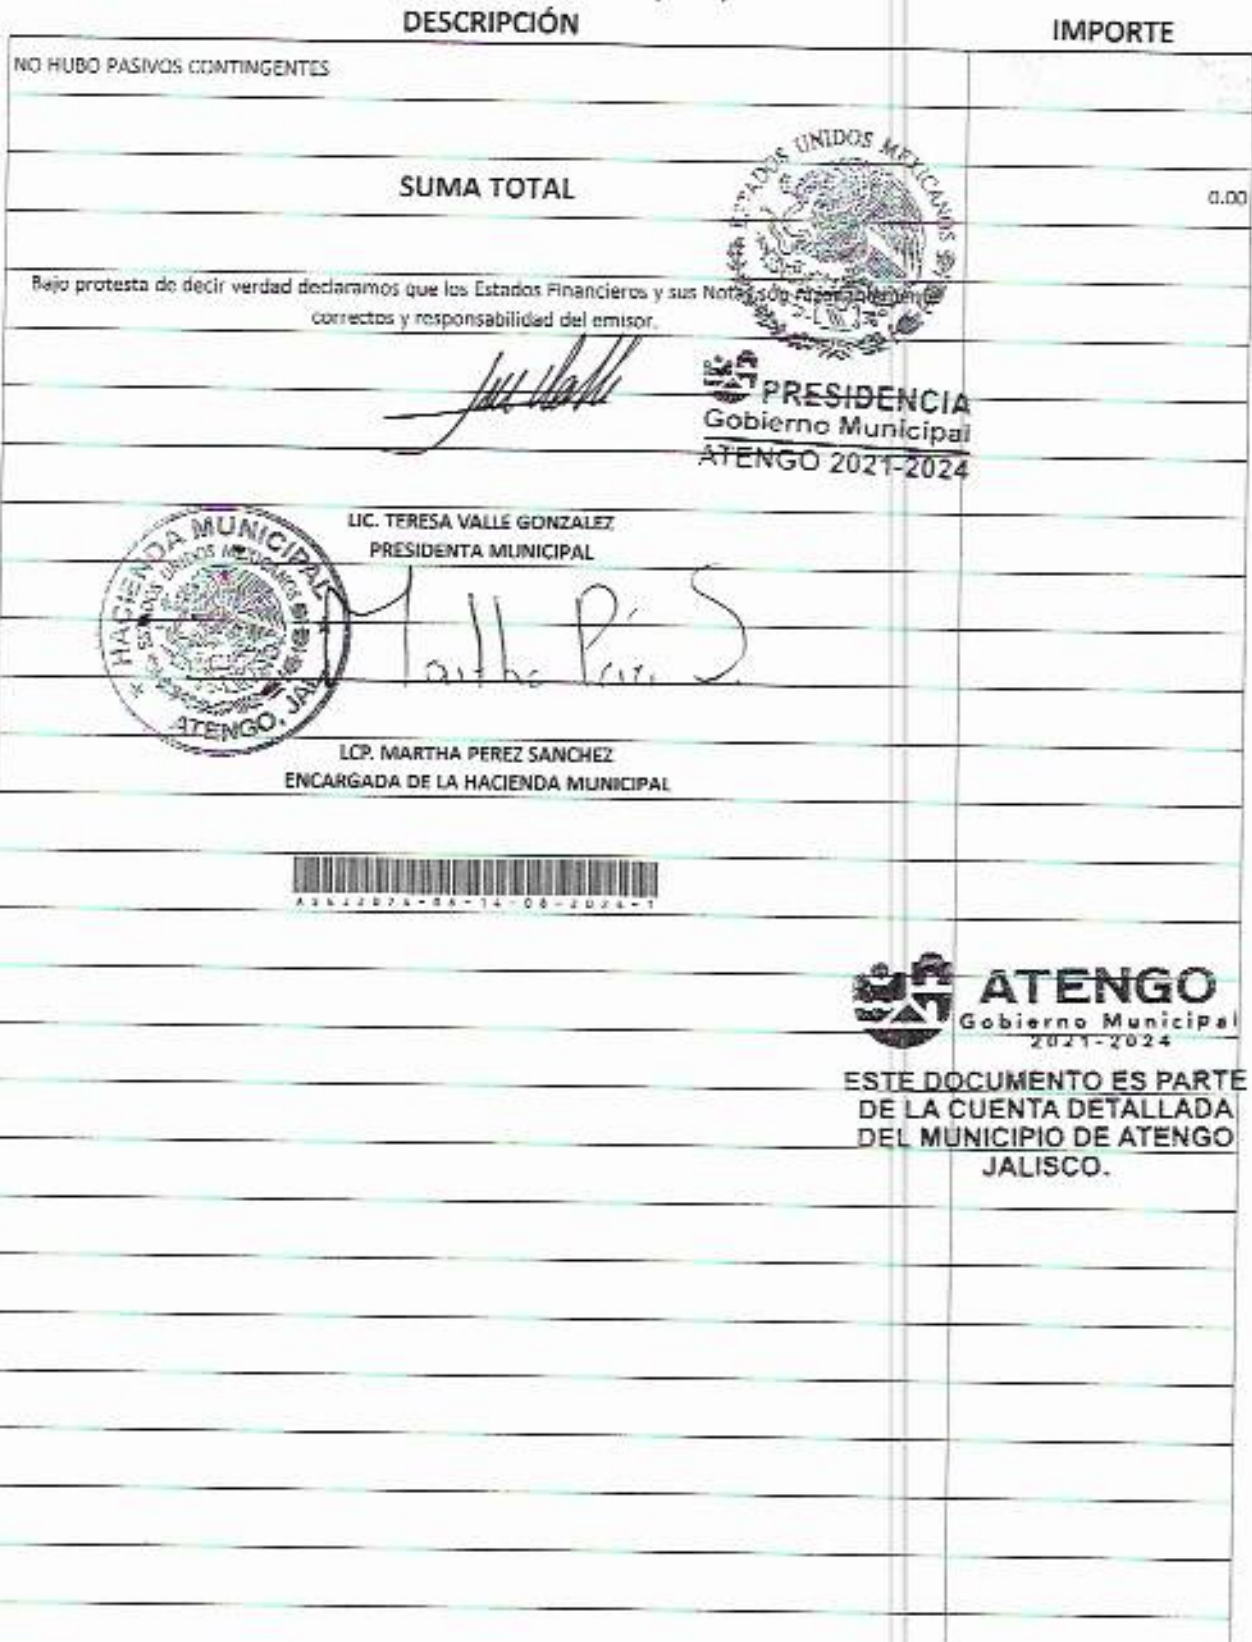 DESCRIPCIÓN
IMPORTE
NO HUBO PASIVOS CONTINGENTES
SUMA TOTAL
0.00
ESTADOS UNIDOS MEXICANOS
Bajo protesta de decir verdad declaramos que los Estados Financieros y sus Notas son
correctos y responsabilidad del emisor.
PRESIDENCIA
Gobierno Municipal
ATENGO 2021-2024
LIC. TERESA VALLE GONZALEZ
PRESIDENTA MUNICIPAL
HACIENDA MUNICIPAL
ESTADOS UNIDOS MEXICANOS
ATENGO, JAL.
Martha Pérez S.
LCP. MARTHA PEREZ SANCHEZ
ENCARGADA DE LA HACIENDA MUNICIPAL
ATENGO
Gobierno Municipal
2021-2024
ESTE DOCUMENTO ES PARTE
DE LA CUENTA DETALLADA
DEL MUNICIPIO DE ATENGO
JALISCO.